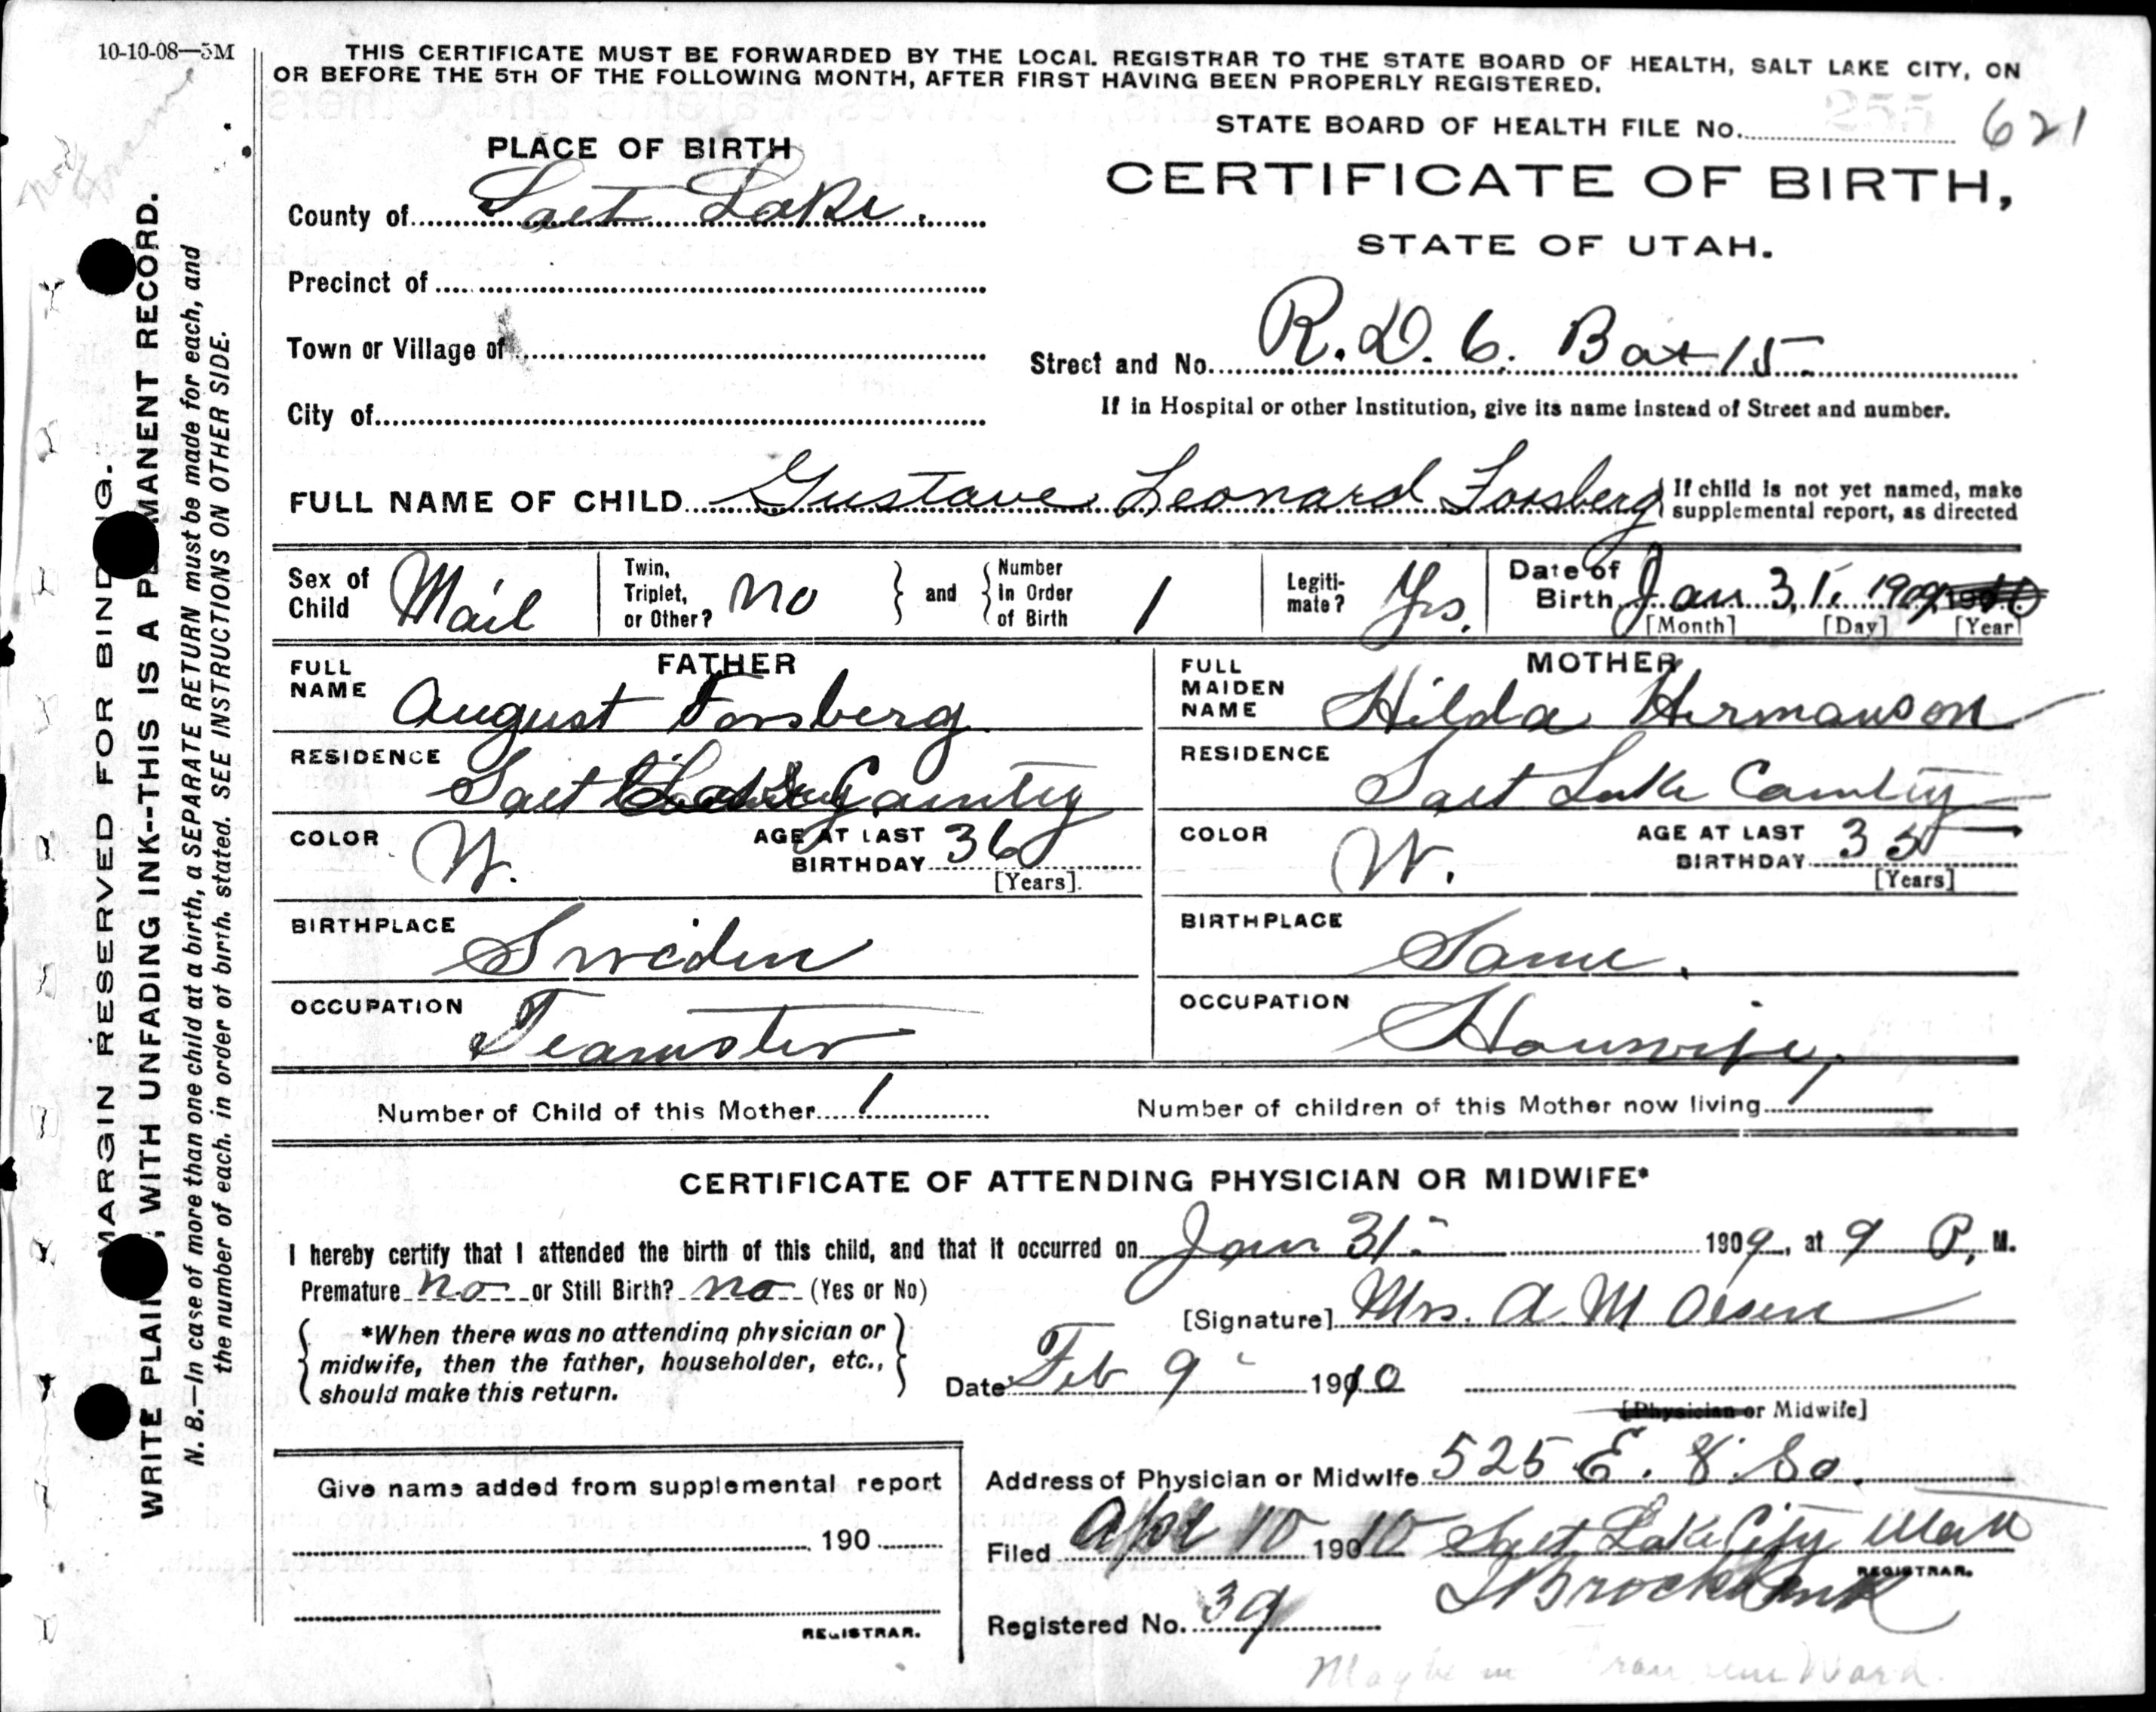 10-10-08—5M
THIS CERTIFICATE MUST BE FORWARDED BY THE LOCAL REGISTRAR TO THE STATE BOARD OF HEALTH, SALT LAKE CITY, ON
OR BEFORE THE 5TH OF THE FOLLOWING MONTH, AFTER FIRST HAVING BEEN PROPERLY REGISTERED.
255
STATE BOARD OF HEALTH FILE No. 621
PLACE OF BIRTH
CERTIFICATE OF BIRTH,
STATE OF UTAH.
County of Salt Lake.
Precinct of
Town or Village of
Street and No. R.D. 6. Box 15
City of
If in Hospital or other Institution, give its name instead of Street and number.
FULL NAME OF CHILD Gustave Leonard Forsberg
If child is not yet named, make
supplemental report, as directed
Sex of Child Mail
Twin, Triplet, or Other? no
and Number In Order of Birth 1
Legitimate? Yes.
Date of Birth Jan 31, 1909
[Month] [Day] [Year]
FATHER
FULL NAME August Forsberg
RESIDENCE Salt County
COLOR W.
AGE AT LAST BIRTHDAY 36 [Years].
BIRTHPLACE Sweden
OCCUPATION Teamster
MOTHER
FULL MAIDEN NAME Hilda Hermanson
RESIDENCE Salt Lake County
COLOR W.
AGE AT LAST BIRTHDAY 35 [Years]
BIRTHPLACE Same.
OCCUPATION Houswife,
Number of Child of this Mother 1
Number of children of this Mother now living 1
CERTIFICATE OF ATTENDING PHYSICIAN OR MIDWIFE*
I hereby certify that I attended the birth of this child, and that it occurred on Jan 31 1909, at 9 P. M.
Premature no or Still Birth? no (Yes or No)
[Signature] Mrs. A. M Olsen
*When there was no attending physician or
midwife, then the father, householder, etc.,
should make this return.
Date Feb 9 1910
[Physician or Midwife]
Give name added from supplemental report
190
REGISTRAR.
Address of Physician or Midwife 525 E. 8 So.
Salt Lake City Utah
Filed Apr 10 1910
Brockbank
REGISTRAR.
Registered No. 39
Maybe in Ward.
MARGIN RESERVED FOR BINDING.
WRITE PLAINLY, WITH UNFADING INK--THIS IS A PERMANENT RECORD.
N. B.—In case of more than one child at a birth, a SEPARATE RETURN must be made for each, and
the number of each, in order of birth, stated. SEE INSTRUCTIONS ON OTHER SIDE.